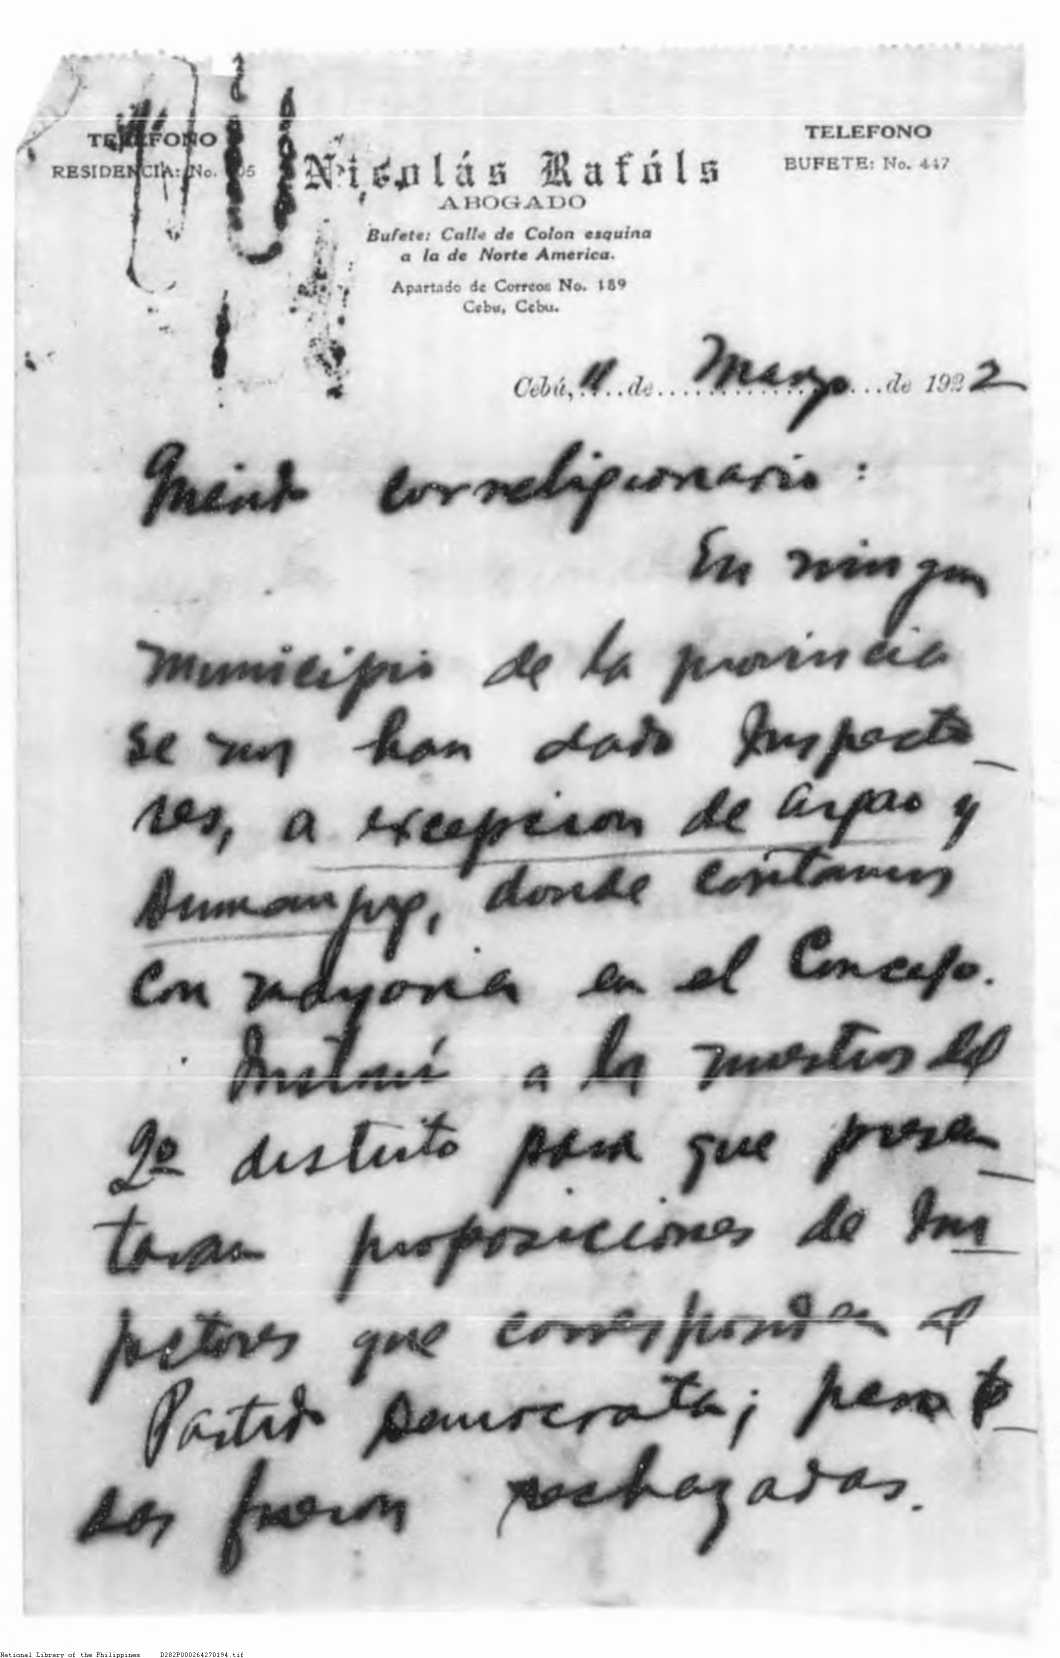 TELEFONO
RESIDENCIA: No.
TELEFONO
BUFETE: No. 447
Nicolás Rafóls
ABOGADO
Bufete: Calle de Colon esquina
a la de Norte America.
Apartado de Correos No. 189
Cebu, Cebu.
Cebú, 11 de Marzo de 1922
Querido correligionario:
En ningun
municipio de la provincia
se nos han dado Inspecto-
res, a excepcion de Argao y
Dumanjug, donde contamos
con mayoria en el Concejo.
Instruí a los nuestros del
2º distrito para que presen-
taran proposiciones de Ins-
pectores que corresponden al
Partido Democrata; pero to-
das fueron rechazadas.
National Library of the Philippines D282P000264270194.tif